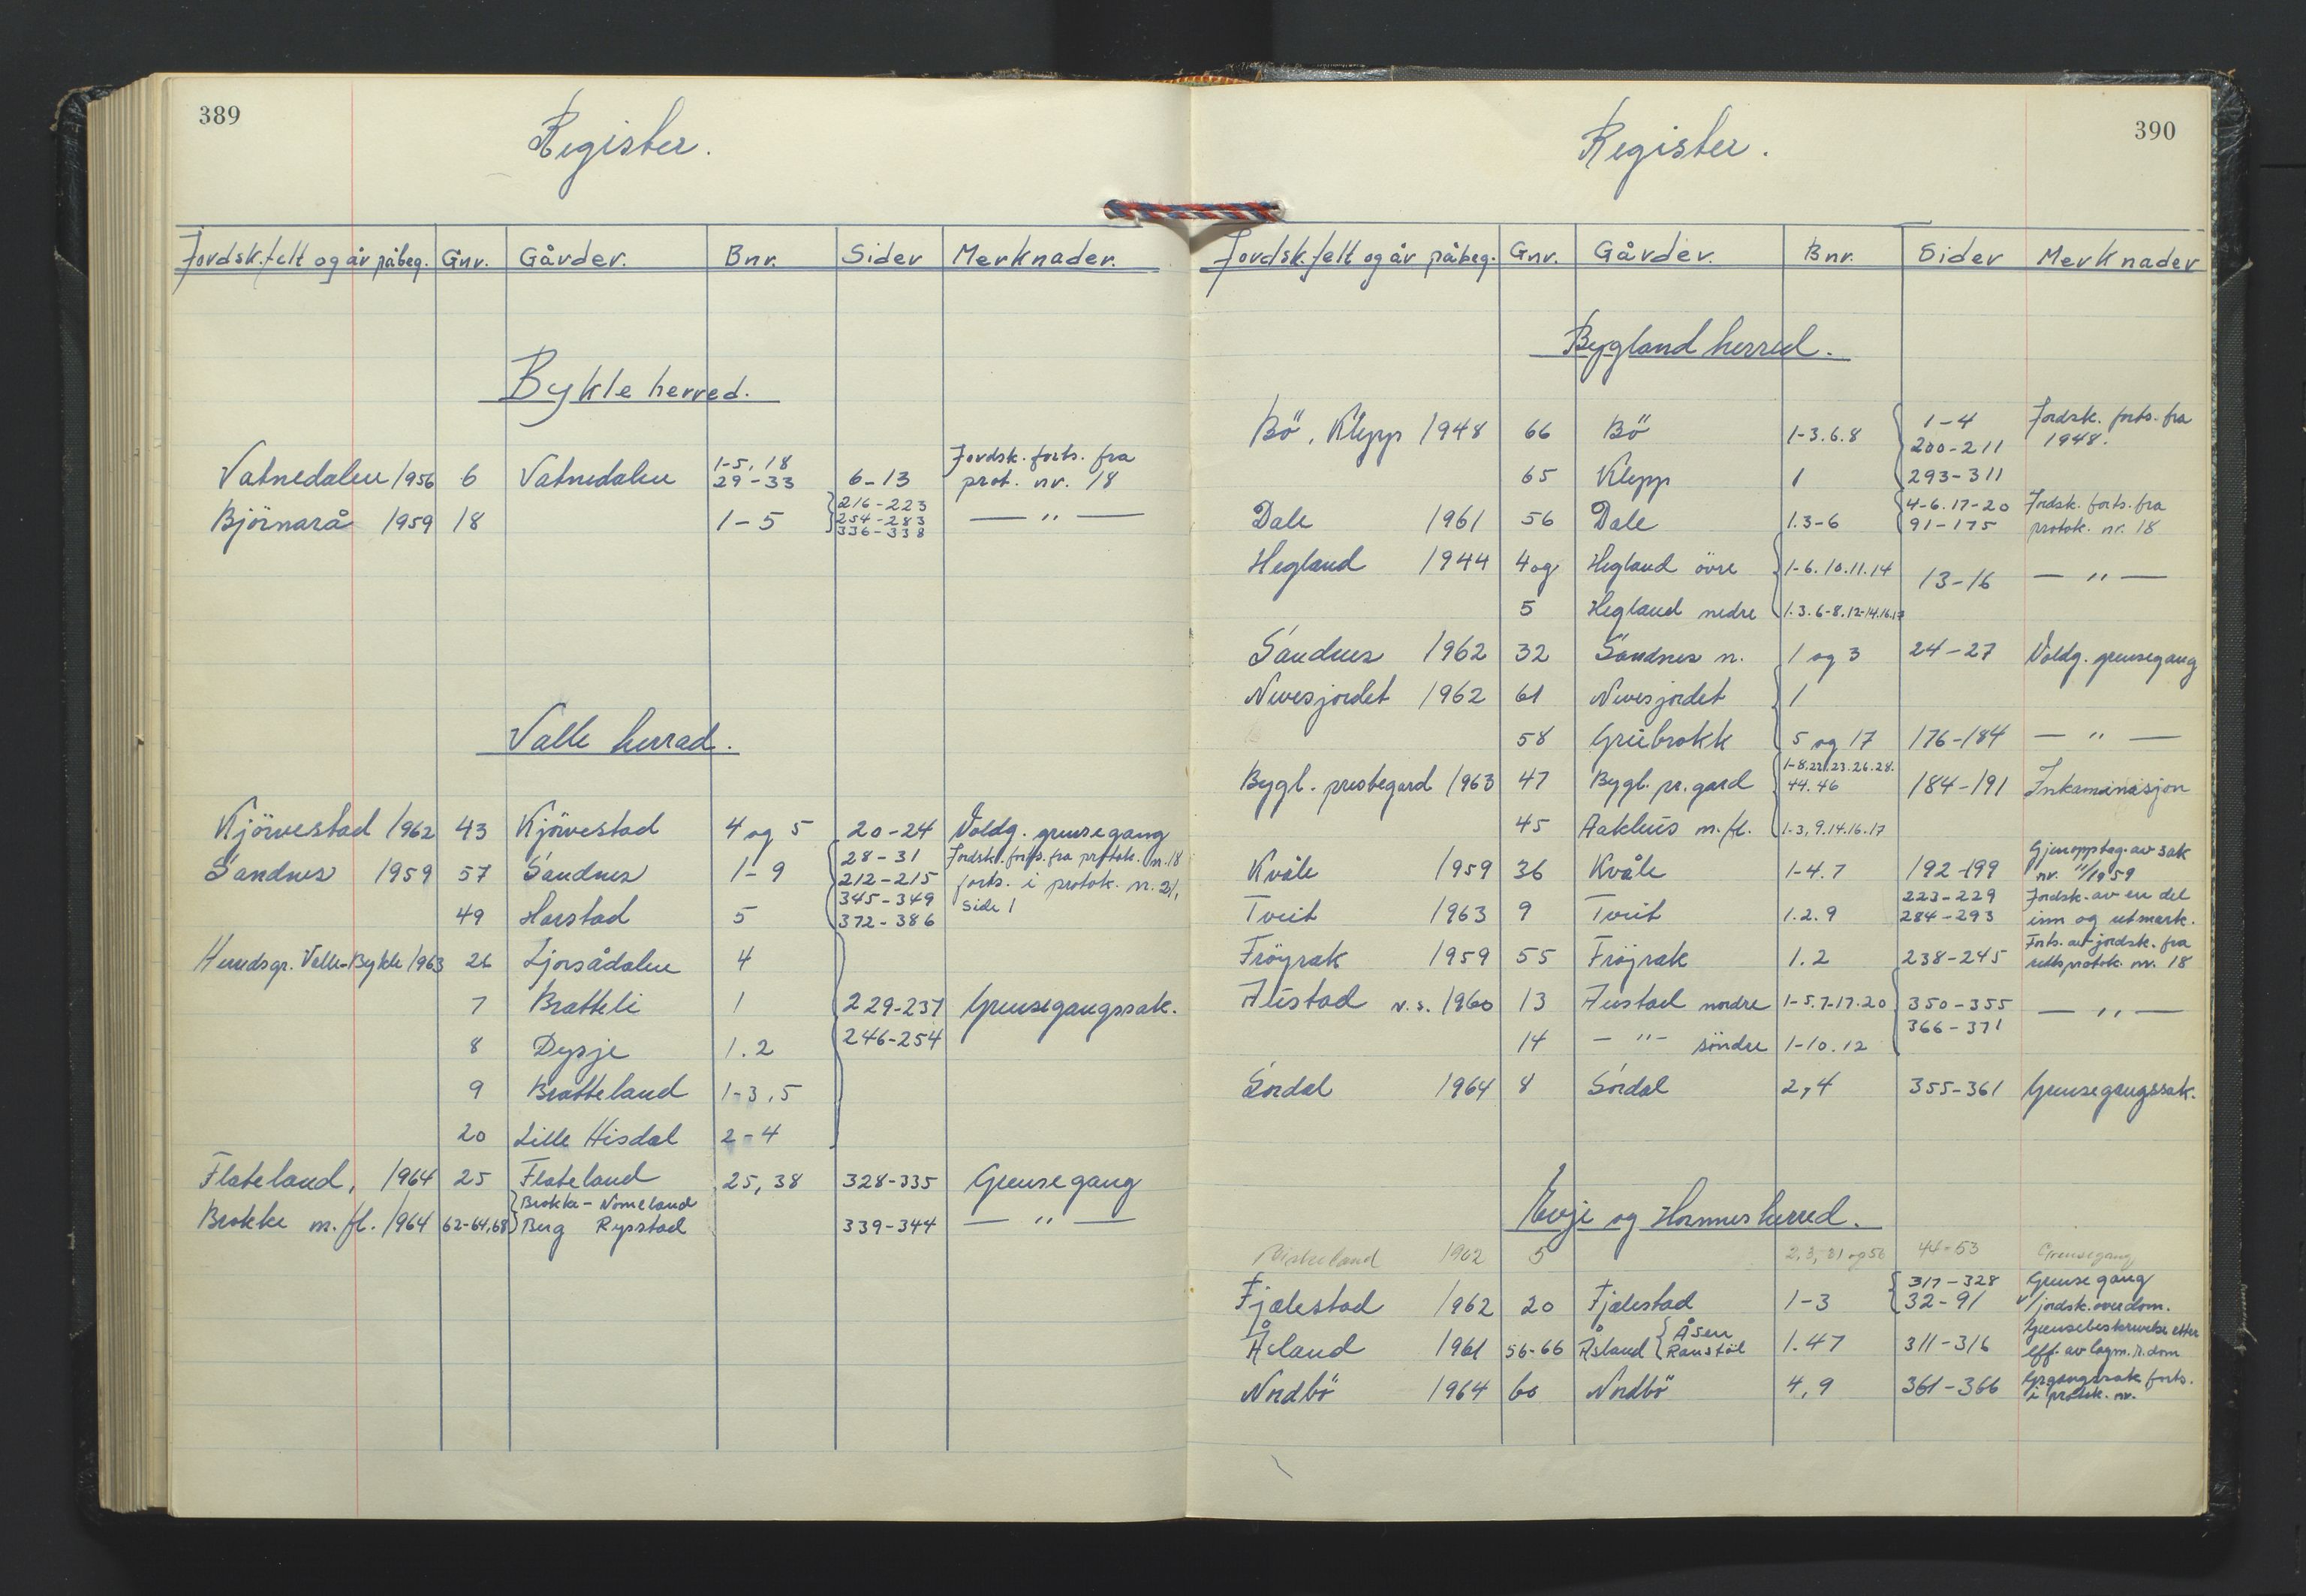 389
Register.
Jordsk.felt og år påbeg. Gnr. Gårder. Bnr. Sider Merknader.
Bykle herred.
1-5, 18 Jordsk. forts. fra
Vatnedalen 1956 6 Vatnedalen 29-33 6-13 prot. nr. 18
216-223
Björnarå 1959 18 1-5 254-283 — " —
336-338
Valle herrad.
Kjörvestad 1962 43 Kjörvestad 4 og 5 20-24 Voldg. grensegang
28-31 Jordsk. forts. fra protok. nr. 18
Sandnes 1959 57 Sandnes 1-9 212-215 forts. i protok. nr. 21,
345-349 side 1
49 Harstad 5 372-386
Herredsgr. Valle-Bykle 1963 26 Ljosådalen 4
7 Bratteli 1 229-237 Grensegangssak.
8 Dysje 1.2 246-254
9 Bratteland 1-3,5
20 Lille Hisdal 2-4
Flateland, 1964 25 Flateland 25, 38 328-335 Grensegang
Brokke - Nomeland
Brokke m.fl. 1964 62-64,68 Berg Rysstad 339-344 — " —
390
Register.
Jordsk.felt og år påbeg. Gnr. Gårder. Bnr. Sider Merknader
Bygland herred.
1-4 Jordsk. forts. fra
Bö, Klepp 1948 66 Bö 1-3.6.8 200-211 1948.
65 Klepp 1 293-311
4-6.17-20 Jordsk. forts. fra
Dale 1961 56 Dale 1.3-6 91-175 protok. nr. 18
Hegland 1944 4 og Hegland övre 1-6.10.11.14 13-16 — " —
5 Hegland nedre 1.3.6-8.12-14.16.17
Sandnes 1962 32 Sandnes n. 1 og 3 24-27 Voldg. grensegang
Nevesjordet 1962 61 Nevesjordet 1
58 Greibrokk 5 og 17 176-184 — " —
1-8.22.23.26.28.
Bygl. prestegard 1963 47 Bygl. pr. gard 44.46 184-191 Inkaminasjon
45 Aakhus m.fl. 1-3, 9.14.16.17
Gjenopptag. av sak
Kvåle 1959 36 Kvåle 1-4.7 192-199 nr. 11/1959
223-229 Jordsk. av en del
Tveit 1963 9 Tveit 1.2.9 284-293 inn og utmark.
Forts. av jordsk. fra
Fröyrak 1959 55 Fröyrak 1.2 238-245 rettsprotok. nr. 18
Austad n.s. 1960 13 Austad nordre 1-5.7-17.20 350-355 — " —
366-371
14 — " — söndre 1-10.12
Sordal 1964 8 Sordal 2,4 355-361 Grensegangssak.
Evje og Hornnes herred.
Birkeland 1962 5 2,3,31 og 56 44-53 Grensegang
317-328 Grensegang
Fjælestad 1962 20 Fjælestad 1-3 32-91 v/jordsk.overdom.
Åsen Grensebeskrivelse etter
Åsland 1961 56-66 Åsland Ranstöl 1.47 311-316 eff. av lagm.r.dom
Nordbö 1964 60 Nordbö 4,9 361-366 Grgangssak forts.
i protok. nr.